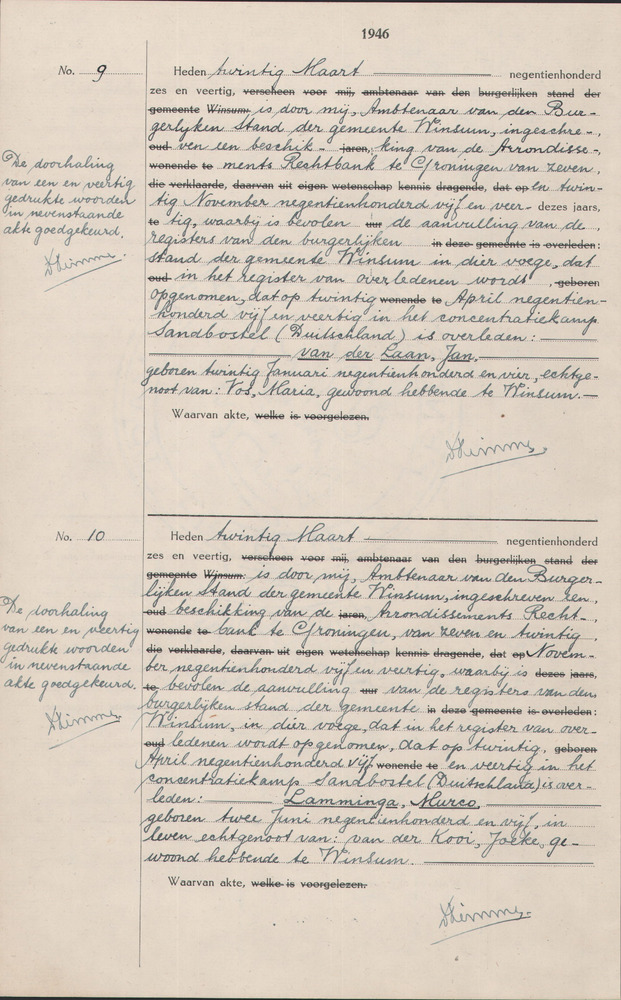 1946
No. 9
Heden twintig Maart negentienhonderd
zes en veertig, verscheen voor mij, ambtenaar van den burgerlijken stand der
gemeente Winsum: is door mij, Ambtenaar van den Bur-
gerlyken Stand der gemeente Winsum, ingeschre-,
oud ven een beschik- jaren, king van de Arrondisse-,
wonende te ments Rechtbank te Groningen van zeven,
die verklaarde, daarvan uit eigen wetenschap kennis dragende, dat op En twin-
tig November negentienhonderd vijf en veer- dezes jaars,
te tig, waarbij is bevolen uur de aanvulling van de
registers van den burgerlijken in deze gemeente is overleden:
stand der gemeente Winsum in dier voege, dat
oud in het register van overledenen wordt, geboren
opgenomen, dat op twintig wonende te April negentien-
honderd vijf en veertig in het concentratiekamp
Sandbostel (Duitschland) is overleden:
van der Laan, Jan,
geboren twintig Januari negentienhonderd en vier, echtge-
noot van: Vos, Maria, gewoond hebbende te Winsum.
Waarvan akte, welke is voorgelezen.
De doorhaling
van een en veertig
gedrukte woorden
in nevenstaande
akte goedgekeurd.
No. 10
Heden twintig Maart negentienhonderd
zes en veertig, verscheen voor mij, ambtenaar van den burgerlijken stand der
gemeente Winsum: is door mij, Ambtenaar van den Burger-
lijken Stand der gemeente Winsum, ingeschreven een,
oud beschikking van de jaren, Arrondissements Recht-,
wonende te bank te Groningen, van zeven en twintig
die verklaarde, daarvan uit eigen wetenschap kennis dragende, dat op Novem-
ber negentienhonderd vijf en veertig, waarbij is dezes jaars,
te bevolen de aanvulling uur van de registers van den
burgerlijken stand der gemeente in deze gemeente is overleden:
Winsum, in dier voege, dat in het register van over-
oud ledenen wordt opgenomen, dat op twintig, geboren
April negentienhonderd vijf wonende te en veertig in het
concentratiekamp Sandbostel (Duitschland) is over-
leden: Lamminga, Murco,
geboren twee Juni negentienhonderd en vijf, in
leven echtgenoot van: van der Kooi, Joeke, ge-
woond hebbende te Winsum.
Waarvan akte, welke is voorgelezen.
De doorhaling
van een en veertig
gedrukte woorden
in nevenstaande
akte goedgekeurd.